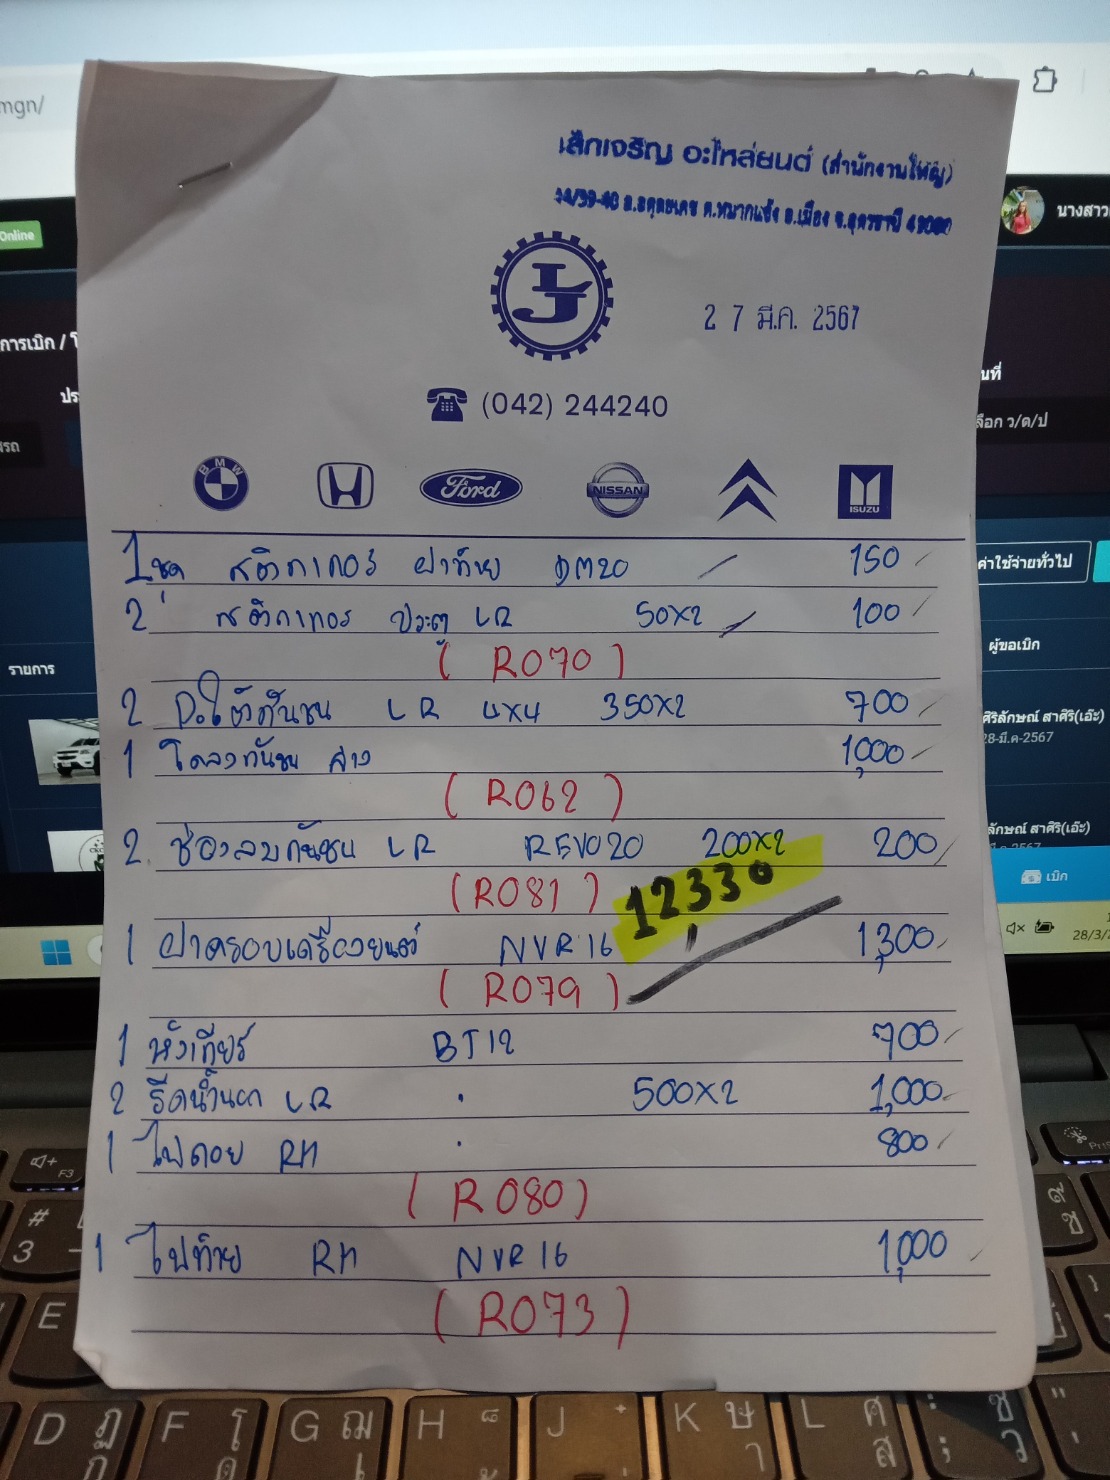 mgn/
Online
นางสาว
การเบิก /
นที่
ประ
ลือก ว/ด/ป
รถ
ค่าใช้จ่ายทั่วไป
ผู้ขอเบิก
รายการ
ศิริลักษณ์ สาศิริ(เอ๊ะ)
28-มี.ค-2567
ลักษณ์ สาศิริ(เอ๊ะ)
เบิก
28/3/
เล็กเจริญ อะไหล่ยนต์ (สำนักงานใหญ่)
ต.หมากแข้ง อ.เมือง จ.อุดรธานี 41000
LJ
2 7 มี.ค. 2567
(042) 244240
BMW Ford NISSAN ISUZU
1 ชุด สติกเกอร์ ฝาท้าย DM20 150
2 สติกเกอร์ ประตู LR 50x2 100
(R070)
2 ปะใต้กันชน LR 4x4 350x2 700
1 โครงกันชน ล่าง 1,000
(R062)
2 ช่องลมกันชน LR REVO20 200x2 200
(R081)
12,330
1 ฝาครอบเครื่องยนต์ NVR16 1,300
(R079)
1 หัวเกียร์ BT12 700
2 รีดน้ำนอก LR " 500x2 1,000
1 ไฟตอย RH " 800
(R080)
1 ไฟท้าย RH NVR16 1,000
(R073)
F3
#
3
E
D
F
G
H
J
K
L